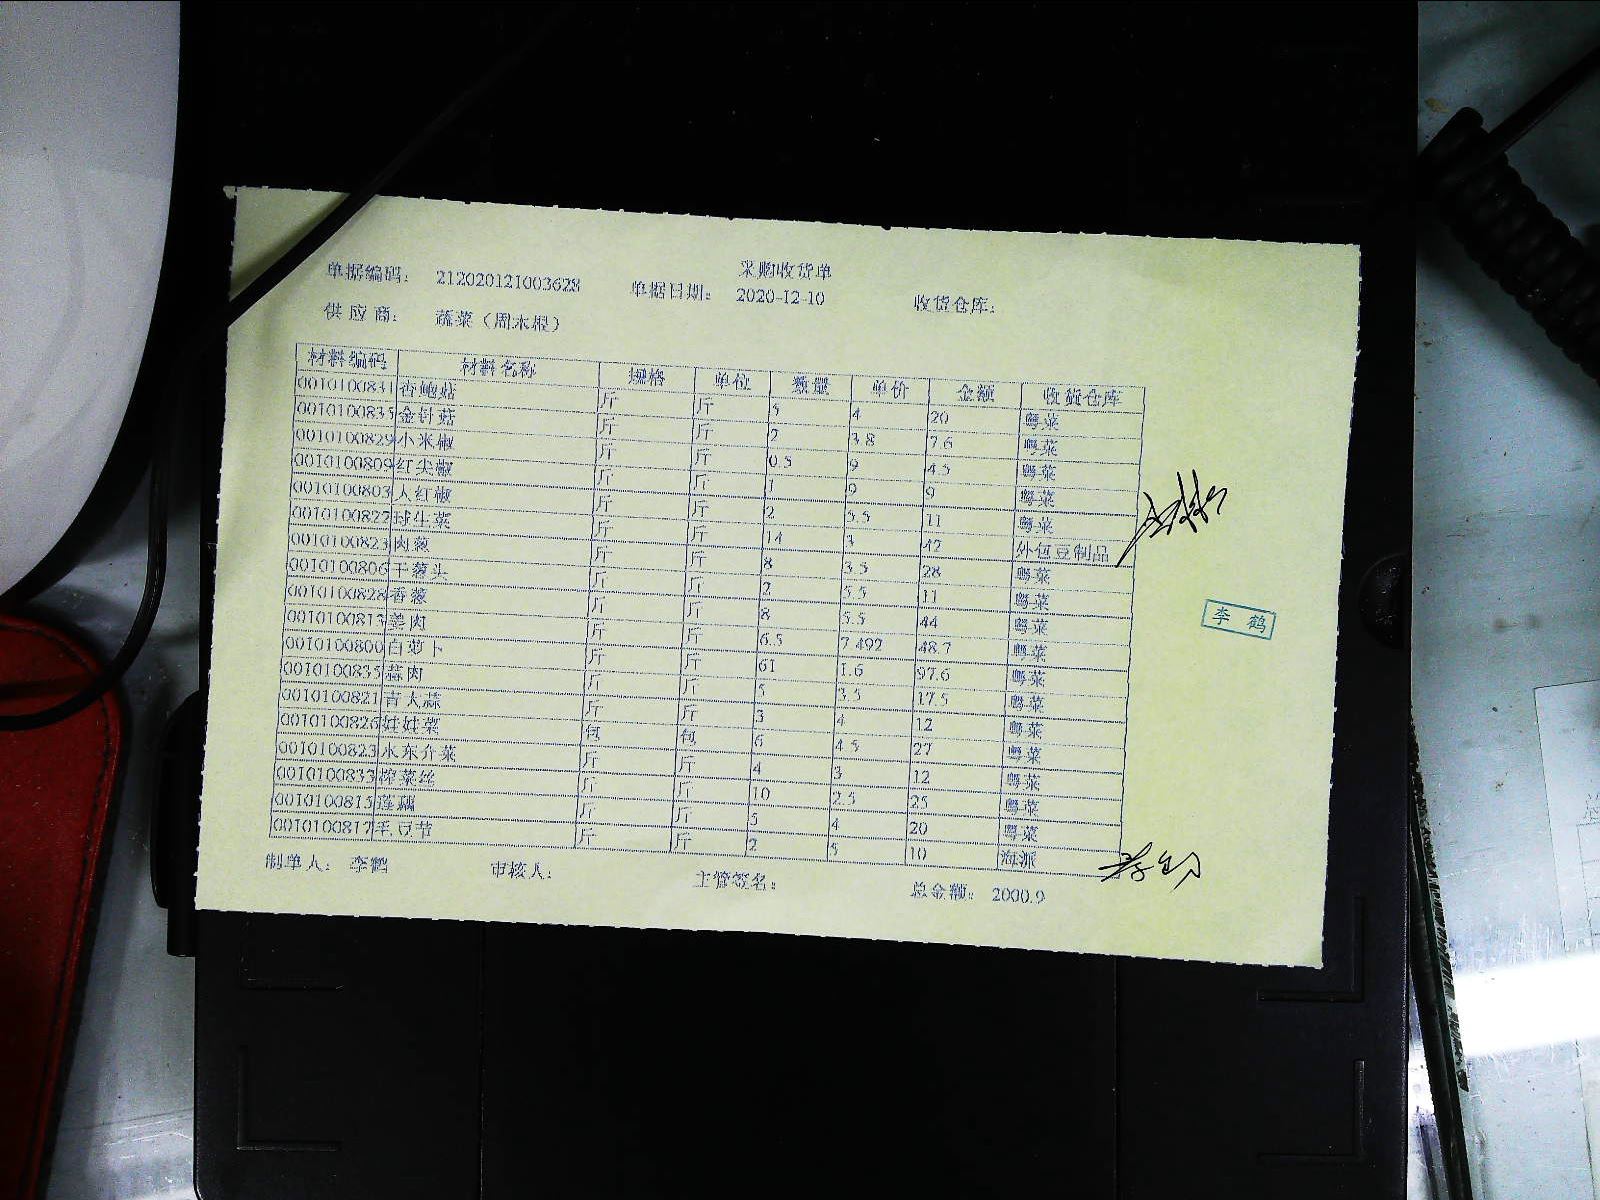 采购收货单
单据编码： 212020121003628 单据日期： 2020-12-10 收货仓库：
供应商： 蔬菜（周木根）
材料编码 材料名称 规格 单位 数量 单价 金额 收货仓库
0010100831 杏鲍菇 斤 斤 5 4 20 粤菜
0010100835 金针菇 斤 斤 2 3.8 7.6 粤菜
0010100829 小米椒 斤 斤 0.5 9 4.5 粤菜
0010100809 红尖椒 斤 斤 1 9 9 粤菜
0010100803 大红椒 斤 斤 2 5.5 11 粤菜
0010100822 球生菜 斤 斤 14 3 42 外包豆制品
0010100823 肉葱 斤 斤 8 3.5 28 粤菜
0010100806 干葱头 斤 斤 2 5.5 11 粤菜
0010100828 香葱 斤 斤 8 5.5 44 粤菜
0010100813 姜肉 斤 斤 6.5 7.492 48.7 粤菜
0010100800 白萝卜 斤 斤 61 1.6 97.6 粤菜
0010100835 蒜肉 斤 斤 5 3.5 17.5 粤菜
0010100821 青大蒜 斤 斤 3 4 12 粤菜
0010100826 娃娃菜 包 包 6 4.5 27 粤菜
0010100823 水东介菜 斤 斤 4 3 12 粤菜
0010100833 榨菜丝 斤 斤 10 2.5 25 粤菜
0010100815 莲藕 斤 斤 5 4 20 粤菜
0010100817 毛豆节 斤 斤 2 5 10 海派
李鹤
制单人： 李鹤 审核人： 主管签名： 总金额： 2000.9